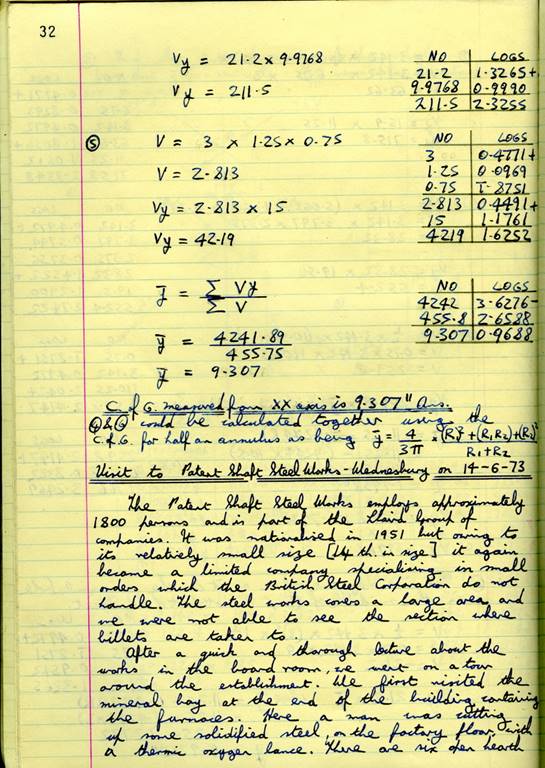 32
Vy = 21.2 x 9.9768
Vy = 211.5
NO LOGS
21.2 1.3265+
9.9768 0.9990
211.5 2.3255
⑤ V = 3 x 1.25 x 0.75
V = 2.813
Vy = 2.813 x 15
Vy = 42.19
NO LOGS
3 0.4771+
1.25 0.0969
0.75 1̄.8751
2.813 0.4491+
15 1.1761
4219 1.6252
ȳ = Σ Vy / Σ V
ȳ = 4241.89 / 455.75
ȳ = 9.307
NO LOGS
4242 3.6276-
455.8 2.6588
9.307 0.9688
C. of G. measured from XX axis is 9.307" Ans.
& could be calculated together using the
C. of G. for half an annulus as being ȳ = 4/3π x (R₁)² + (R₁R₂) + (R₂)² / R₁+R₂
Visit to Patent Shaft Steel Works - Wednesbury on 14-6-73
The Patent Shaft Steel Works employs approximately
1800 persons and is part of the Group of
companies. It was nationalised in 1951 but owing to
its relatively small size [14 th. in size] it again
became a limited company specialising in small
orders which the British Steel Corporation do not
handle. The steel works covers a large area and
we were not able to see the section where
billets are taken to.
After a quick and thorough lecture about the
works in the board room, we went on a tour
around the establishment. We first visited the
mineral bay at the end of the building containing
the furnaces. Here a man was cutting
up some solidified steel, on the factory floor, with
a thermic oxygen lance. There are six open hearth